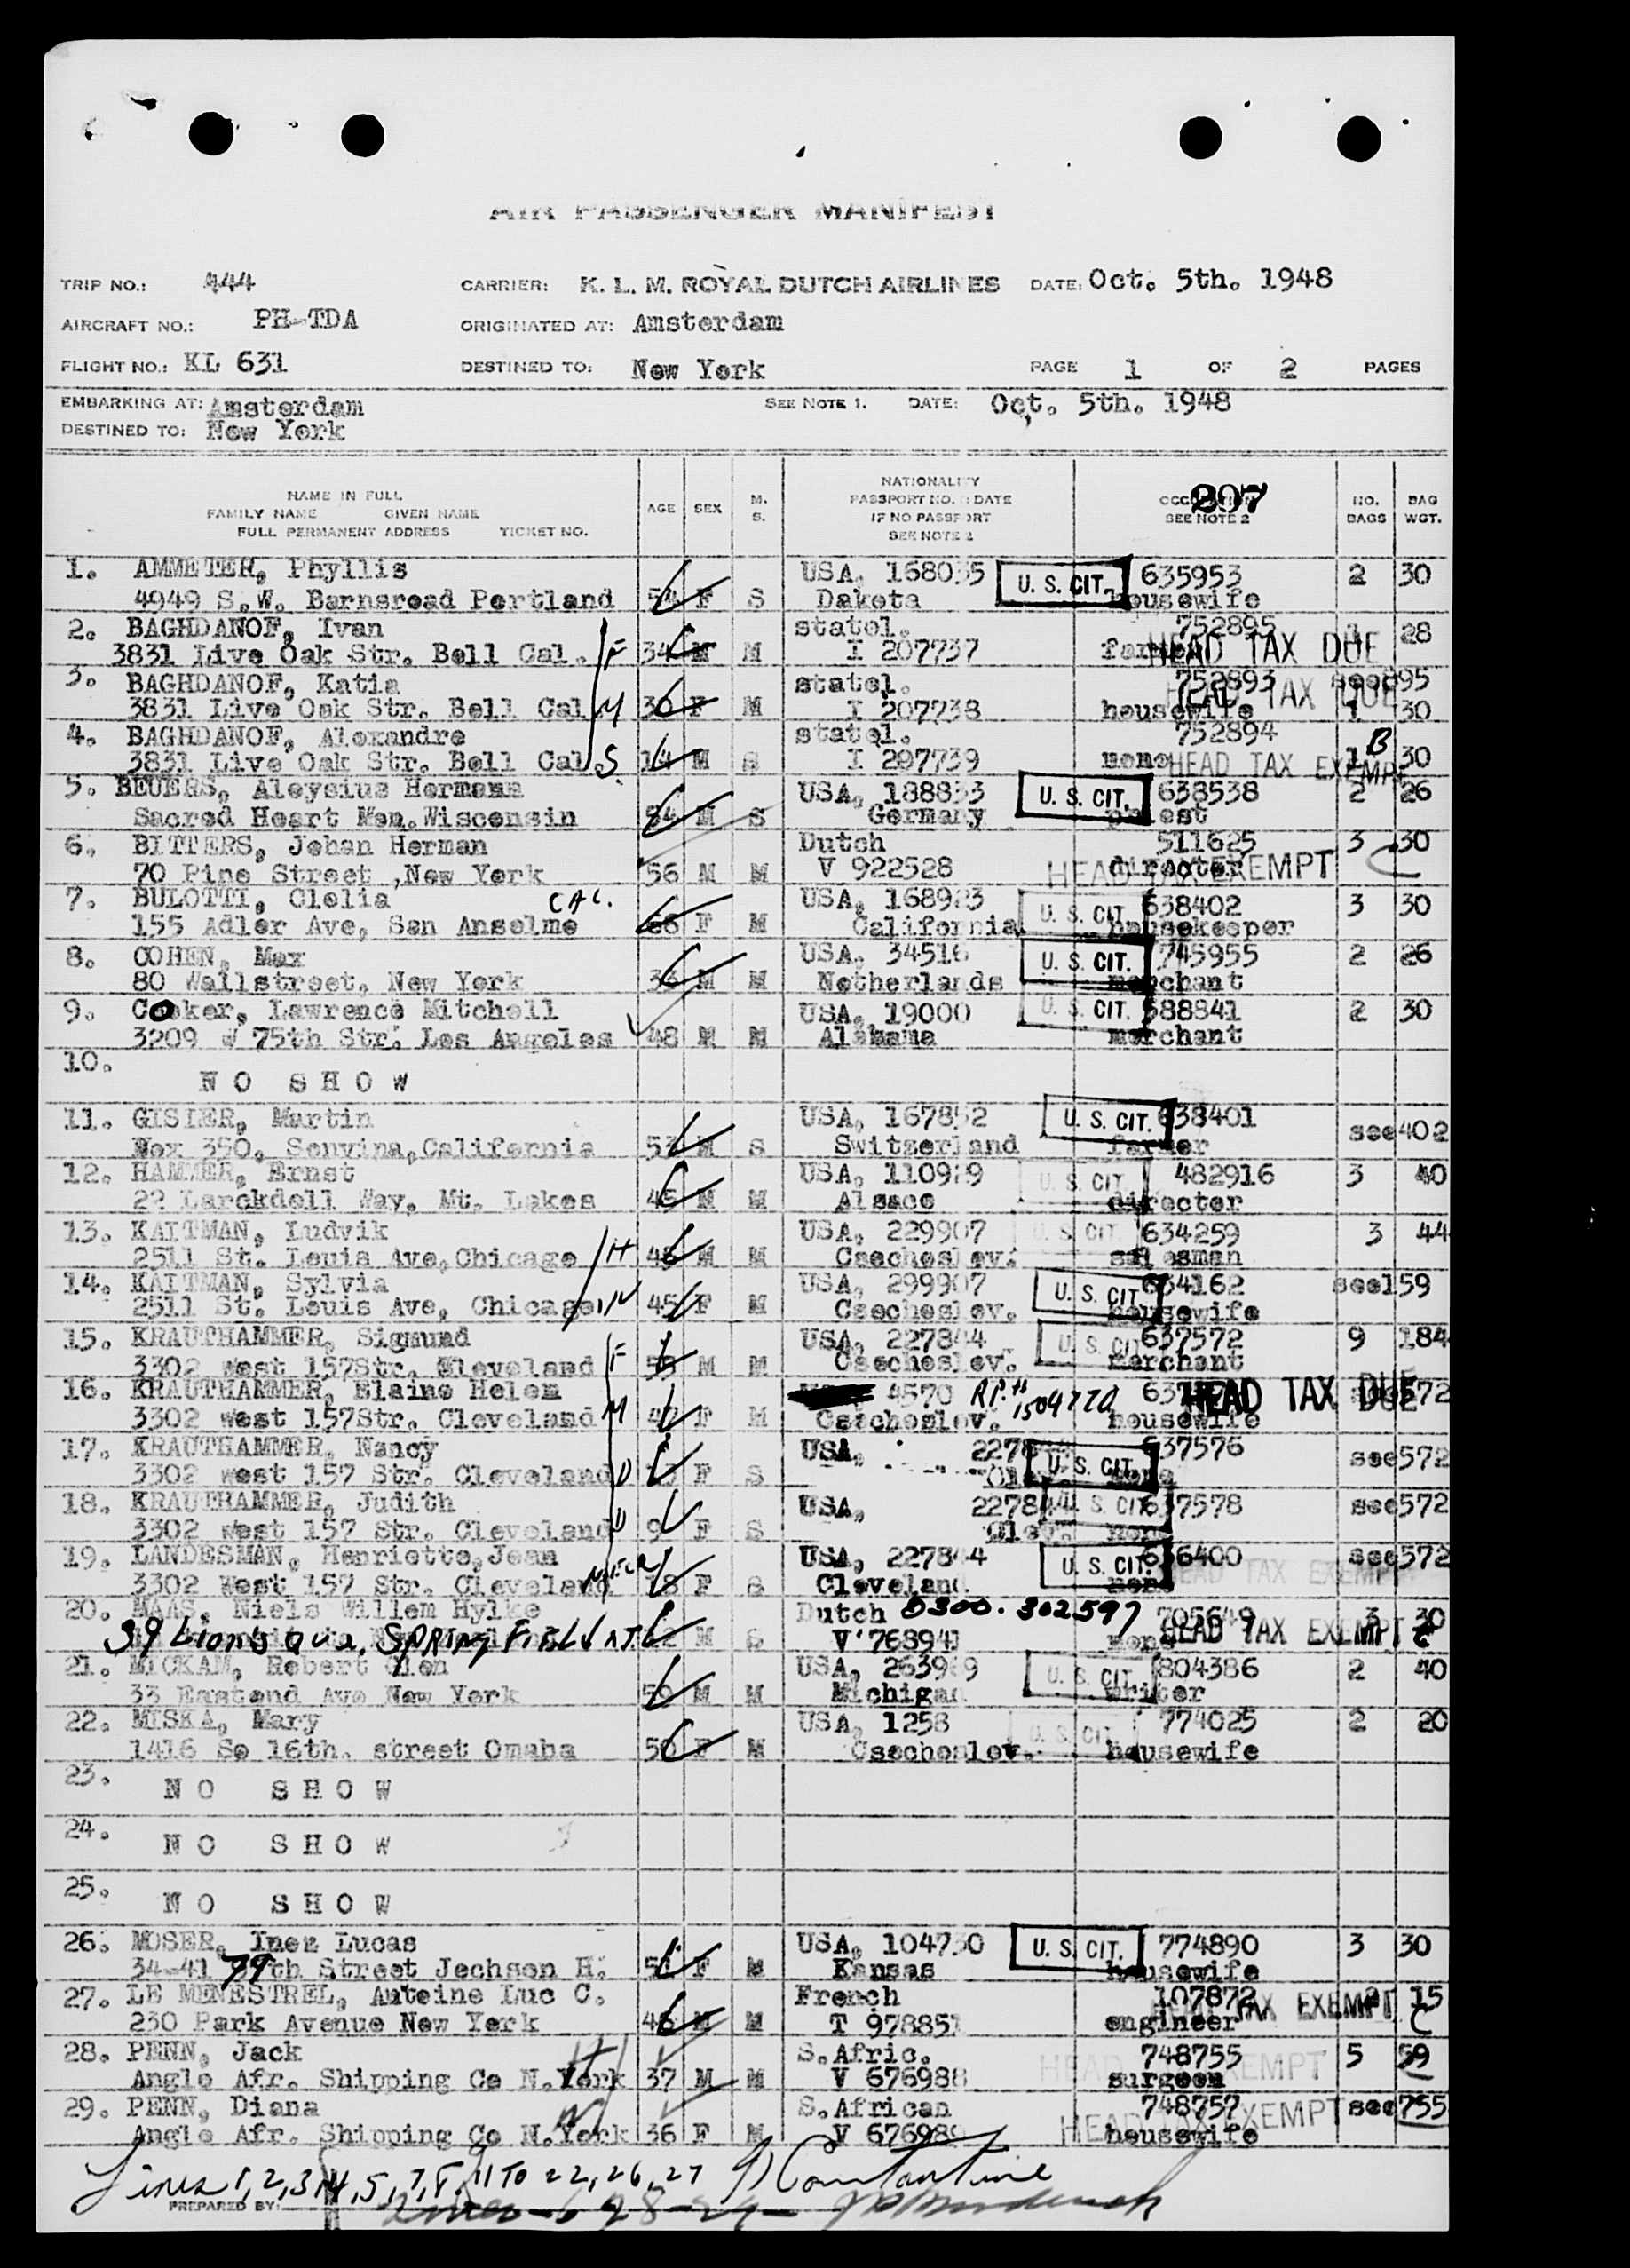 AIR PASSENGER MANIFEST
TRIP NO.: 444 CARRIER: K. L. M. ROYAL DUTCH AIRLINES DATE: Oct. 5th. 1948
AIRCRAFT NO.: PH-TDA ORIGINATED AT: Amsterdam
FLIGHT NO.: KL 631 DESTINED TO: New York PAGE 1 OF 2 PAGES
EMBARKING AT: Amsterdam SEE NOTE 1. DATE: Oct. 5th. 1948
DESTINED TO: New York
NAME IN FULL
FAMILY NAME GIVEN NAME
FULL PERMANENT ADDRESS TICKET NO.
AGE SEX M. S.
NATIONALITY
PASSPORT NO. DATE
IF NO PASSPORT
SEE NOTE 2
297
SEE NOTE 2
NO. BAGS BAG WGT.
1. AMMETER, Phyllis USA, 168035 U. S. CIT. 635953 2 30
4949 S.W. Barnsroad Portland 54 F S Dakota housewife
2. BAGHDANOF, Ivan statel. 752895 1 28
3831 Live Oak Str. Bell Cal. F 34 M M I 207737 HEAD TAX DUE
3. BAGHDANOF, Katia statel. 752893 see895
3831 Live Oak Str. Bell Cal. M 30 F M I 207738 housewife HEAD TAX DUE 1 30
4. BAGHDANOF, Alexandre statel. 752894 B
3831 Live Oak Str. Bell Cal. S 14 M S I 207739 none HEAD TAX EXEMPT 1 30
5. BEUERS, Aloysius Hermann USA, 188833 U. S. CIT. 638538 2 26
Sacred Heart Mon. Wisconsin 54 M S Germany priest
6. BITTERS, Johan Herman Dutch 511625 3 30
70 Pine Street ,New York 56 M M V 922528 director HEAD TAX EXEMPT C
7. BULOTTI, Clelia CAL. USA, 168923 U. S. CIT. 638402 3 30
155 Adler Ave, San Anselmo 68 F M California housekeeper
8. COHEN, Max USA, 34516 U. S. CIT. 745955 2 26
80 Wallstreet, New York 33 M M Netherlands merchant
9. Cooker, Lawrence Mitchell USA, 19000 U. S. CIT. 588841 2 30
3209 W 75th Str. Los Angeles 48 M M Alabama merchant
10.
NO SHOW
11. GISLER, Martin USA, 167852 U. S. CIT. 638401 see402
Nox 350, Sonvina,California 53 M S Switzerland farmer
12. HAMMER, Ernst USA, 110929 U. S. CIT. 482916 3 40
22 Larckdell Way, Mt. Lakes 45 M M Alsace director
13. KALTMAN, Ludvik USA, 229907 U. S. CIT. 634259 3 44
2511 St. Louis Ave,Chicago H 48 M M Czechoslov. salesman
14. KALTMAN, Sylvia USA, 299907 U. S. CIT. 634162 see159
2511 St. Louis Ave, Chicago W 45 F M Czechoslov. housewife
15. KRAUTHAMMER, Sigmund USA, 227844 U. S. CIT. 637572 9 184
3302 west 157Str. Cleveland F 55 M M Czechoslov. merchant
16. KRAUTHAMMER, Elaine Helen 4570 R.P.# 1504770 HEAD TAX DUE see572
3302 west 157Str. Cleveland M F M Czechoslov. housewife
17. KRAUTHAMMER, Nancy USA, 2278 U. S. CIT. 637576 see572
3302 west 157 Str. Cleveland D F S none
18. KRAUTHAMMER, Judith USA, 227844 U. S. CIT. 637578 see572
3302 west 157 Str. Cleveland D 9 F S Clev. none
19. LANDESMAN, Henriette,Jean USA, 227844 U. S. CIT. 636400 see572
3302 West 157 Str. Cleveland NIECE 18 F S Cleveland none HEAD TAX EXEMPT
20. MAAS, Niels Willem Hylke Dutch 0300. 302597 705649 3 30
39 Lion's ave, SPRINGFIELD N.J. M S V 76894 none HEAD TAX EXEMPT C
21. MICKAM, Robert Glen USA, 263969 U. S. CIT. 804386 2 40
33 Eastend Ave New York 50 M M Michigan writer
22. MISKA, Mary USA, 1258 U. S. CIT. 774025 2 20
1416 So 16th. street Omaha 50 F M Czechoslov. housewife
23.
NO SHOW
24.
NO SHOW
25.
NO SHOW
26. MOSER, Inez Lucas USA, 104730 U. S. CIT. 774890 3 30
34-41 79th Street Jechson H. 51 F M Kansas housewife
27. LE MENESTREL, Antoine Luc C. French 107872 2 15
230 Park Avenue New York 46 M M T 97885 engineer HEAD TAX EXEMPT C
28. PENN, Jack H S.Afric. 748755 5 59
Anglo Afr. Shipping Co N.York 37 M M V 676988 surgeon HEAD TAX EXEMPT
29. PENN, Diana W S.African 748757 see755
Anglo Afr. Shipping Co N.York 36 F M V 67698 housewife HEAD TAX EXEMPT
Lines 1,2,3,4,5,7,8, 11 TO 22, 26, 27 Constantine
PREPARED BY: